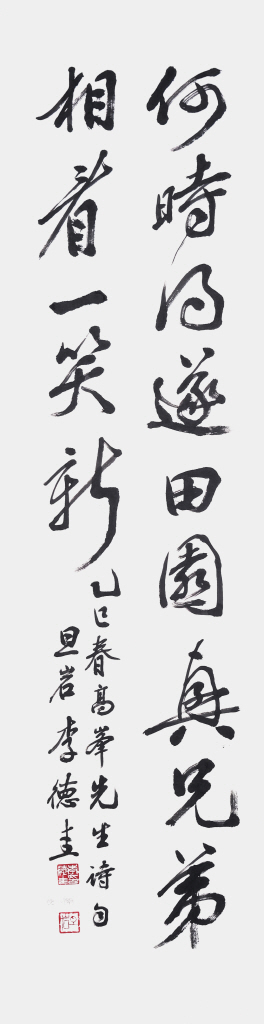 何時得遂田園真兄弟
相看一笑新
乙巳春高峯先生詩句
旦岩李德圭